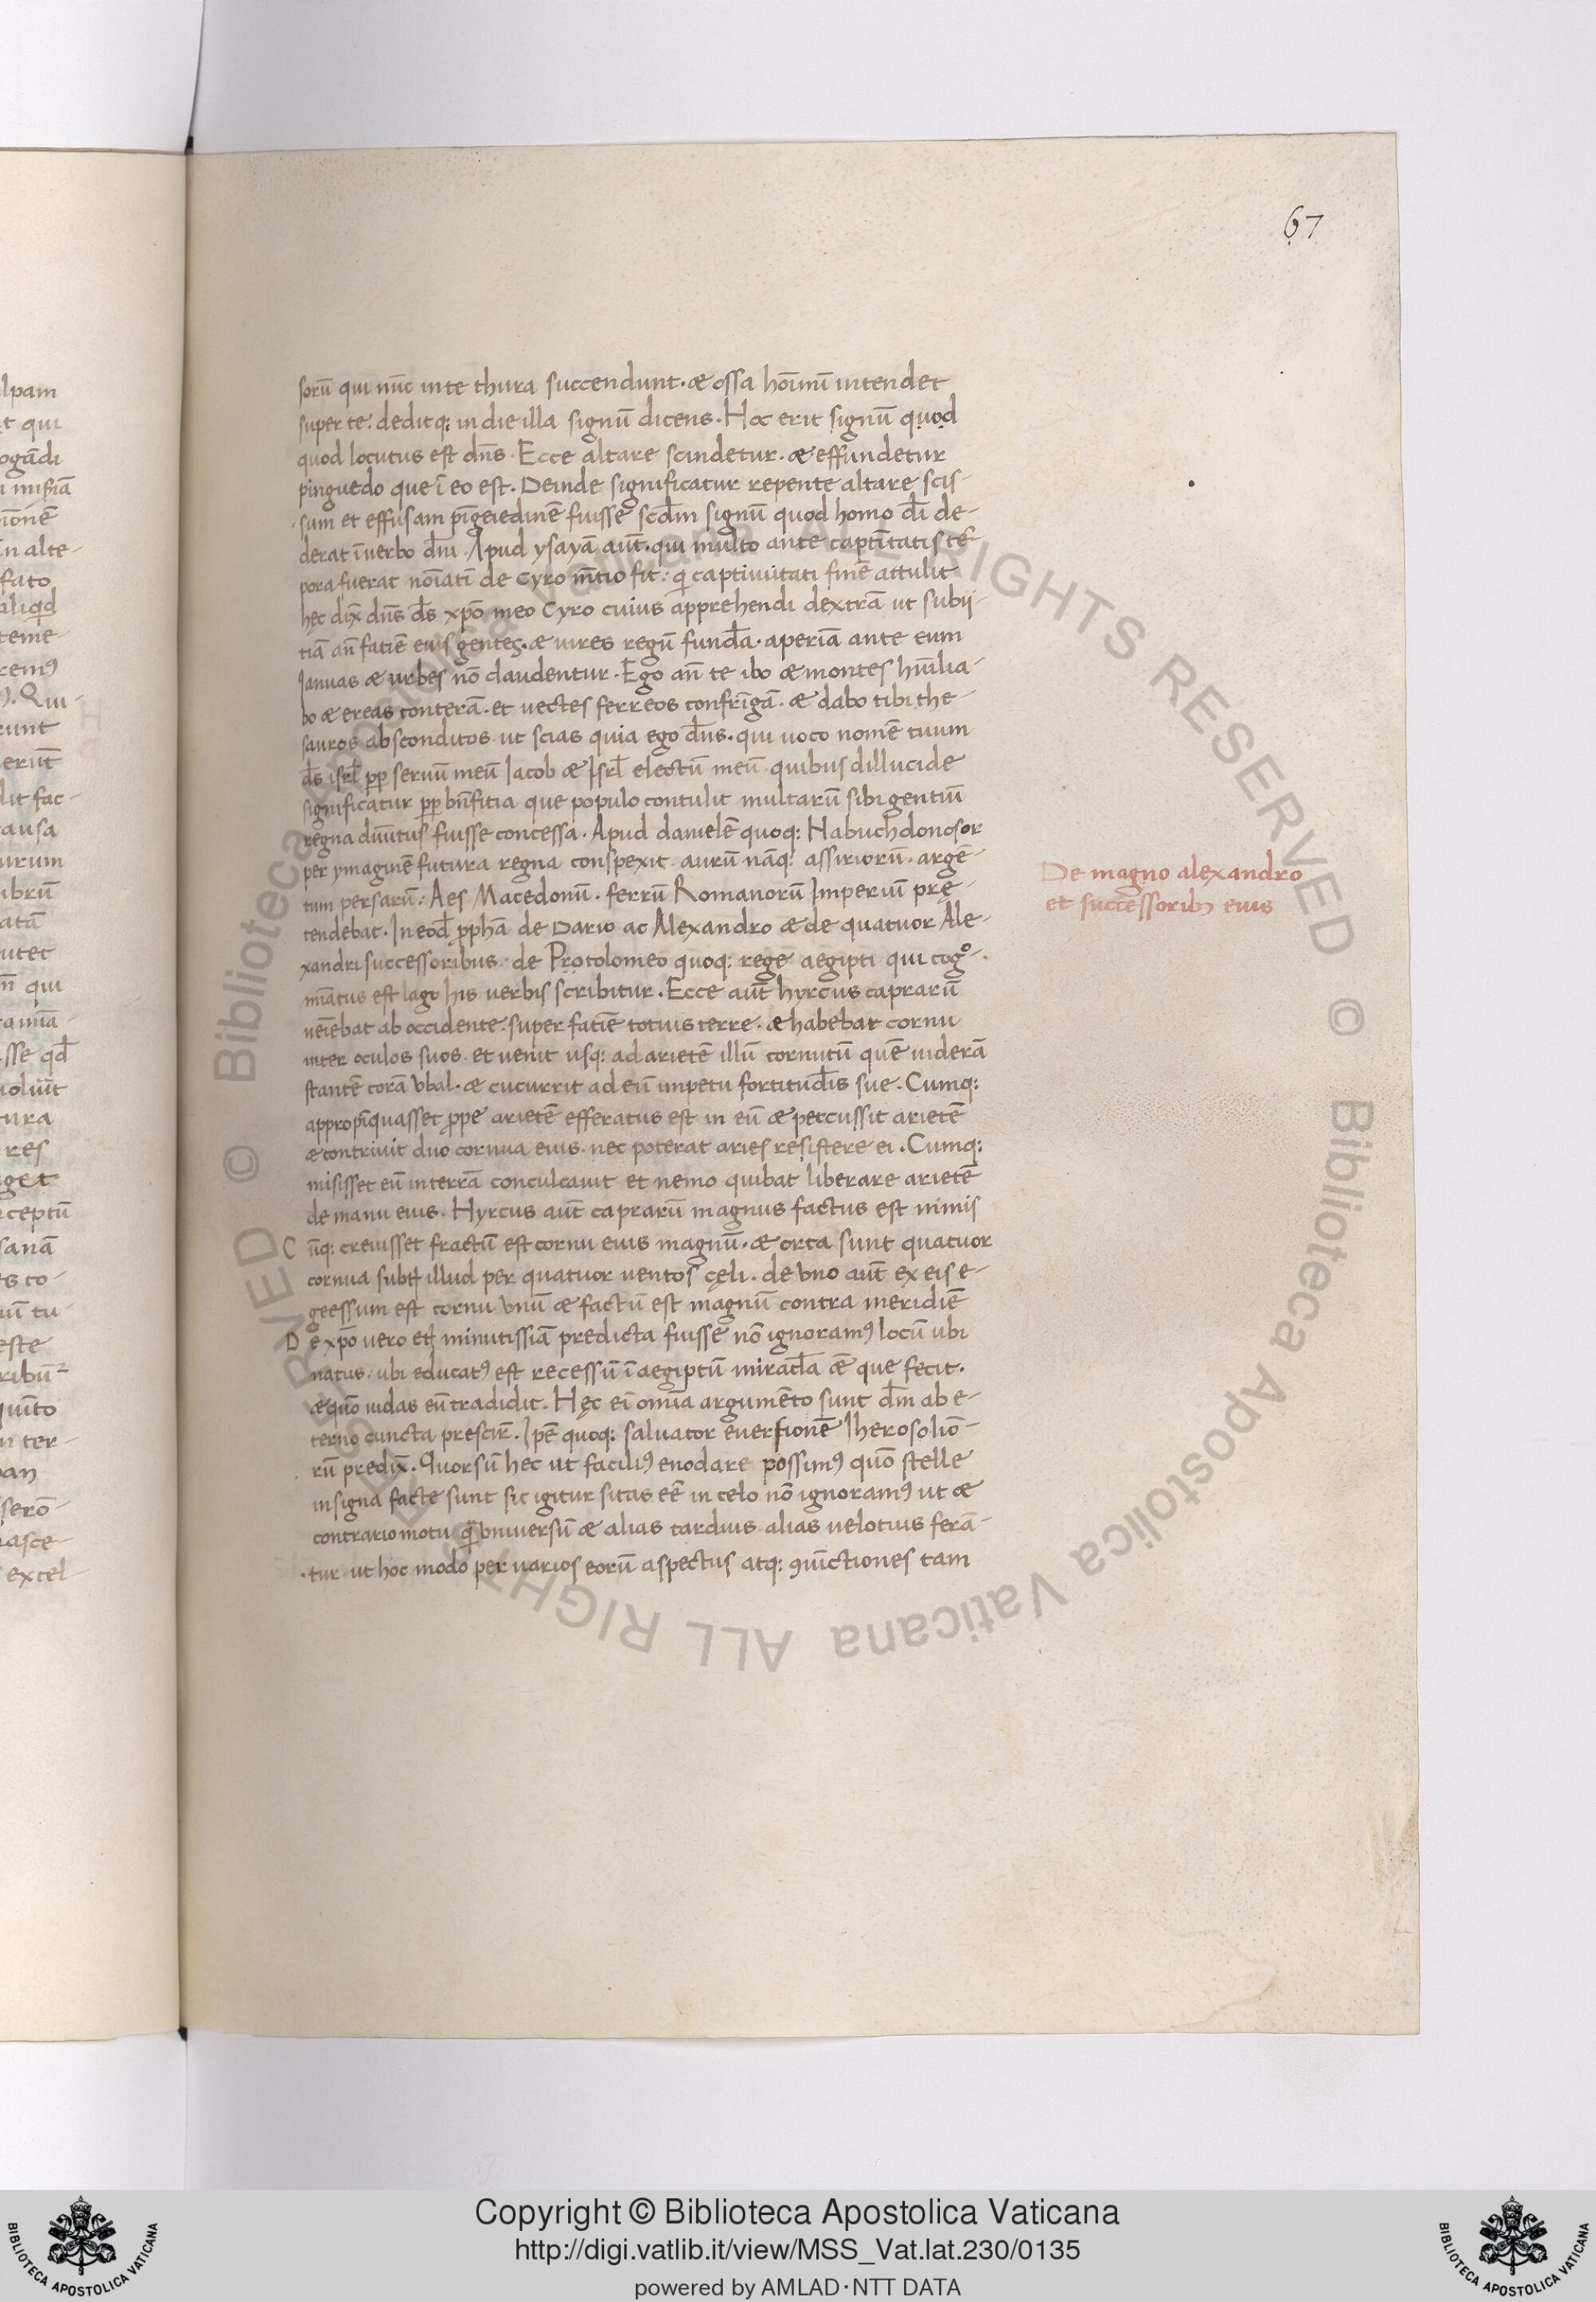 67
sorū qui nūc in te thura succendunt. & ossa hoīnū intendet
super te. deditq; in die illa signū dicens. Hoc erit signū quod
quod locutus est dn̄s. Ecce altare scindetur. & effundetur
pinguedo que ī eo est. Deinde significatur repente altare scis-
sum et effusam pīgeiedinē fuisse scd̄m signū quod homo dī de-
derat ī verbo dn̄i. Apud ysayā aūt. qui multo ante captītatis tē
pora fuerat noīatī de Cyro m̄tio fit: qi captivitati finē attulit
hęc dix̄ dn̄s d̄s xp̄o meo Cyro cuius apprehendi dextrā ut subij-
tiā an̄ fatiē eius gentes. & uires regū funda. aperiā ante eum
Ianuas & urbes nō claudentur. Ego an̄ te ibo & montes hūilia-
bo & ereas conterā. et uectes ferreos confrīgā. & dabo tibi the-
sauros absconditos ut scias quia ego dn̄s. qui uoco nomē tuum
d̄s isrl̄ pp̄ seruū meū Iacob & Isrl̄ electū meū quibus dillucide
significatur pp̄ bn̄fitia que populo contulit multarū sibi gentiū
regna diuītus fuisse concessa. Apud danielē quoq; Habuchdonosor
per ymaginē futura regna conspexit aurū nāq; assiriorū. argē-
tum persarū: Aes Macedonū. ferrū Romanorū Imperiū prę-
tendebat. In eod̄ pphā de Dario ac Alexandro & de quatuor Ale-
xandri successoribus. de Protolomeo quoq; rege aegipti qui cogo-
mīatus est lago his uerbis scribitur. Ecce aūt hyrcus caprarū
ueīebat ab occidente. super fatiē totius terre. & habebat cornu
inter oculos suos. et uenit usq; ad arietē illū cornutū quē viderā
stantē corā vbal. & cucurrit ad eū impetu fortitud̄is sue. Cumq;
appropīquasset ppe arietē efferatus est in eū & percussit arietē
& contriuit duo cornua eius. nec poterat aries resistere ei. Cumq;
misisset eū in terrā conculcauit et nemo quibat liberare arietē
de manu eius. Hyrcus aūt caprarū magnus factus est nimis
C ūq; creuisset fractū est cornu eius magnū. & orta sunt quatuor
cornua subt illud per quatuor uentos cęli. de vno aūt ex eis e-
geessum est cornu vnū & factū est magnū contra meridiē
D e xp̄o uero et minutissīa predicta fuisse nō ignoramꝰ locū ubi
natus. ubi educatꝰ est recessū ī aegiptū miracl̄a & que fecit.
& quō iudas eū tradidit. Hęc eī omīa argumēto sunt d̄m ab e-
terno cuncta prescir̄. Ipē quoq; saluator euersionē Iherosoliō-
rū predix̄. Quorsū hec ut faciliꝰ enodare possimꝰ quō stelle
in signa facte sunt sic igitur sitas eē in celo nō ignoramꝰ ut &
contrario motu q̄ vniuersū & alias tardius alias uelotius ferā-
tur. ut hoc modo per uarios eorū aspectus atq; ꝯiūctiones tam
De magno alexandro
et successoribꝫ eius
Copyright © Biblioteca Apostolica Vaticana
http://digi.vatlib.it/view/MSS_Vat.lat.230/0135
powered by AMLAD·NTT DATA